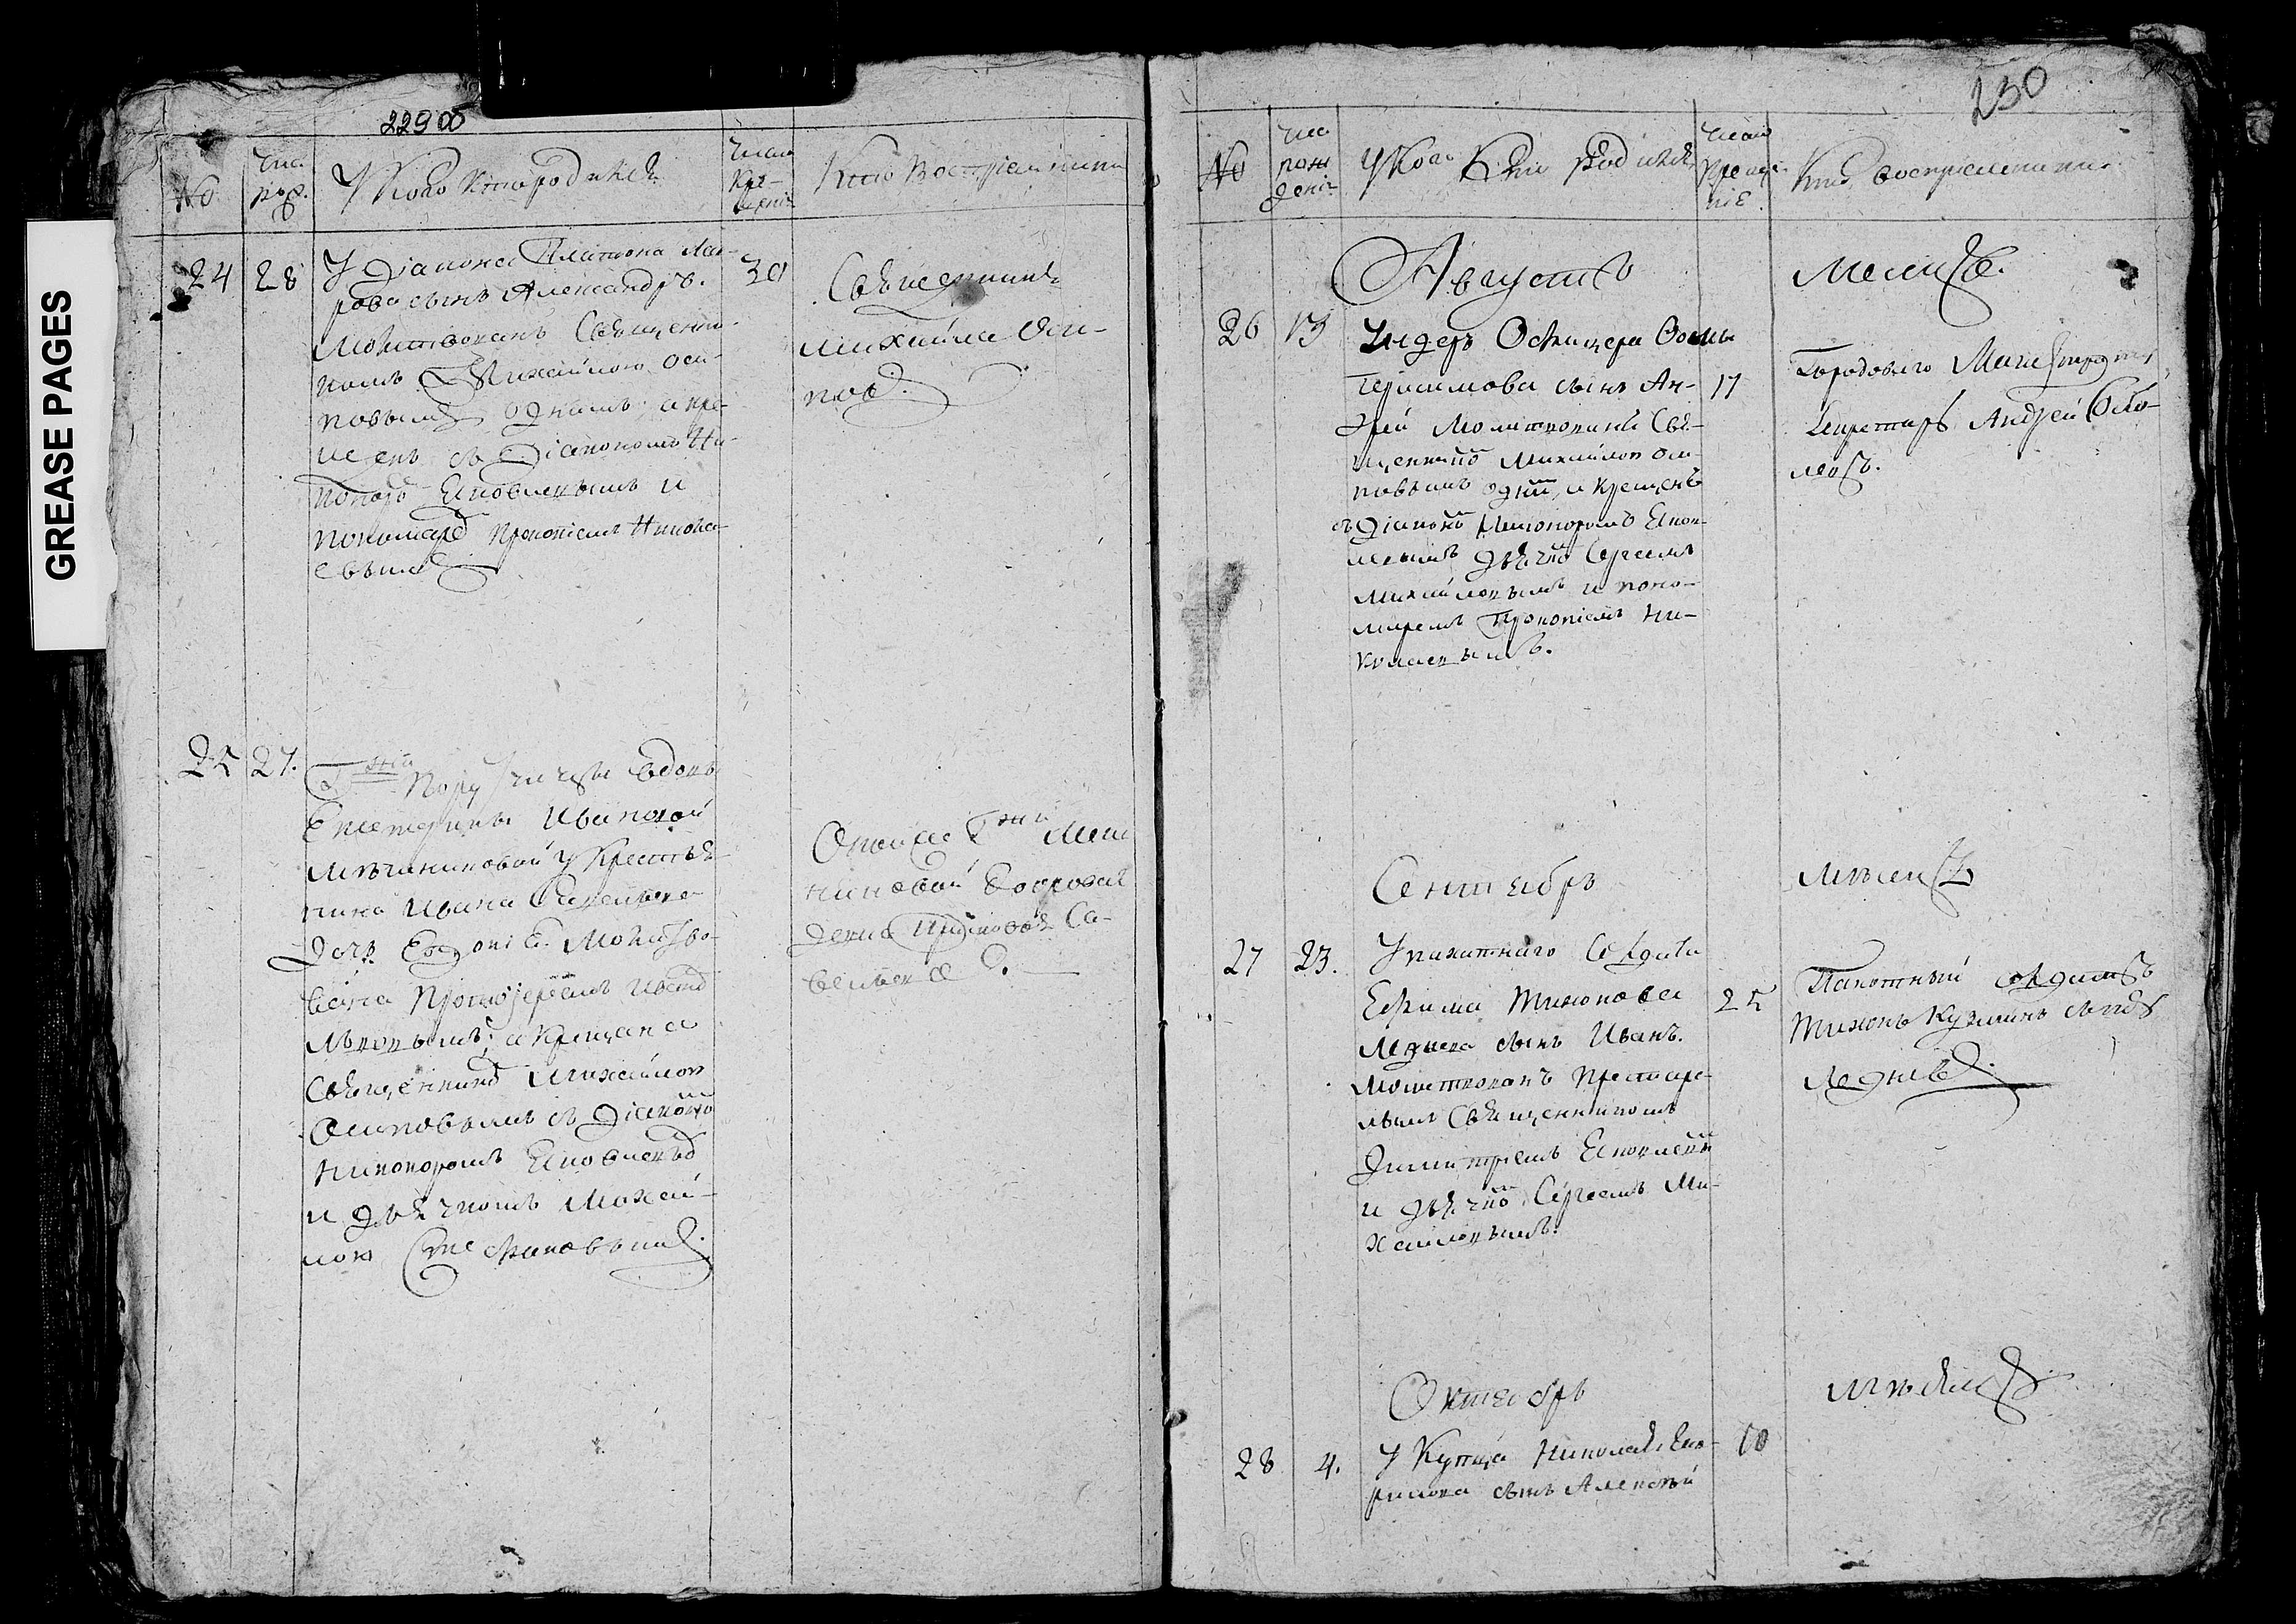 GREASE PAGES
229 об
№
Чис. рож.
У Кого Кто родился
Число Кре-
щения
Кто Восприемники
24 28
У Диакона Платона Лав-
рова сынъ Александръ.
Молитвованъ Священни-
комъ Михайлою Оси-
повымъ однимъ; а кре-
щенъ съ Диакономъ Ни-
каноромъ
и
пономаремъ Прокопиемъ Никола-
евымъ
30
Священникъ
Михайла Оси-
повъ.
25 27.
Гжи Порутчицы вдовы
Екатерины Ивановой
у Крестья-
нина Ивана Савельева
дочь Евдокия. Молитво-
вана Протоиереемъ
а Крещена
Священникомъ Михайлою
Осиповымъ съ Диакономъ
Никаноромъ
и дьячкомъ Михай-
лою Стефановымъ.
Оной же Гжи
Са-
вельева.
230
№
Чис
рож
дения
У Кого Кто Родился
Число
Креще
ние
Кто восприемники
Августъ
Месяцъ.
26 13
Ундеръ Офицера Фомы
Герасимова сынъ Ан-
дрей Молитвованъ Свя-
щенникомъ Михайлою Оси-
повымъ однимъ, а Крещенъ
съ Диакономъ Никаноромъ
дьячкомъ Сергеемъ
Михайловымъ и поно-
маремъ Прокопиемъ Ни-
колаевымъ.
17
Городоваго Магистрата
Секретарь Андрей
Сентябрь
Месяцъ
27 23.
У пахотнаго Солдата
Ефима Тихонова
Леднева сынъ Иванъ.
Молитвованъ Престаре-
лымъ Священникомъ
Димитриемъ
и дьячкомъ Сергеемъ Ми-
хайловымъ.
25
Пахотный солдатъ
Тихонъ Кузминъ сынъ
Ледневъ.
Октябрь
Месяцъ
28 4.
У Купца Николая
сынъ Алексей
10